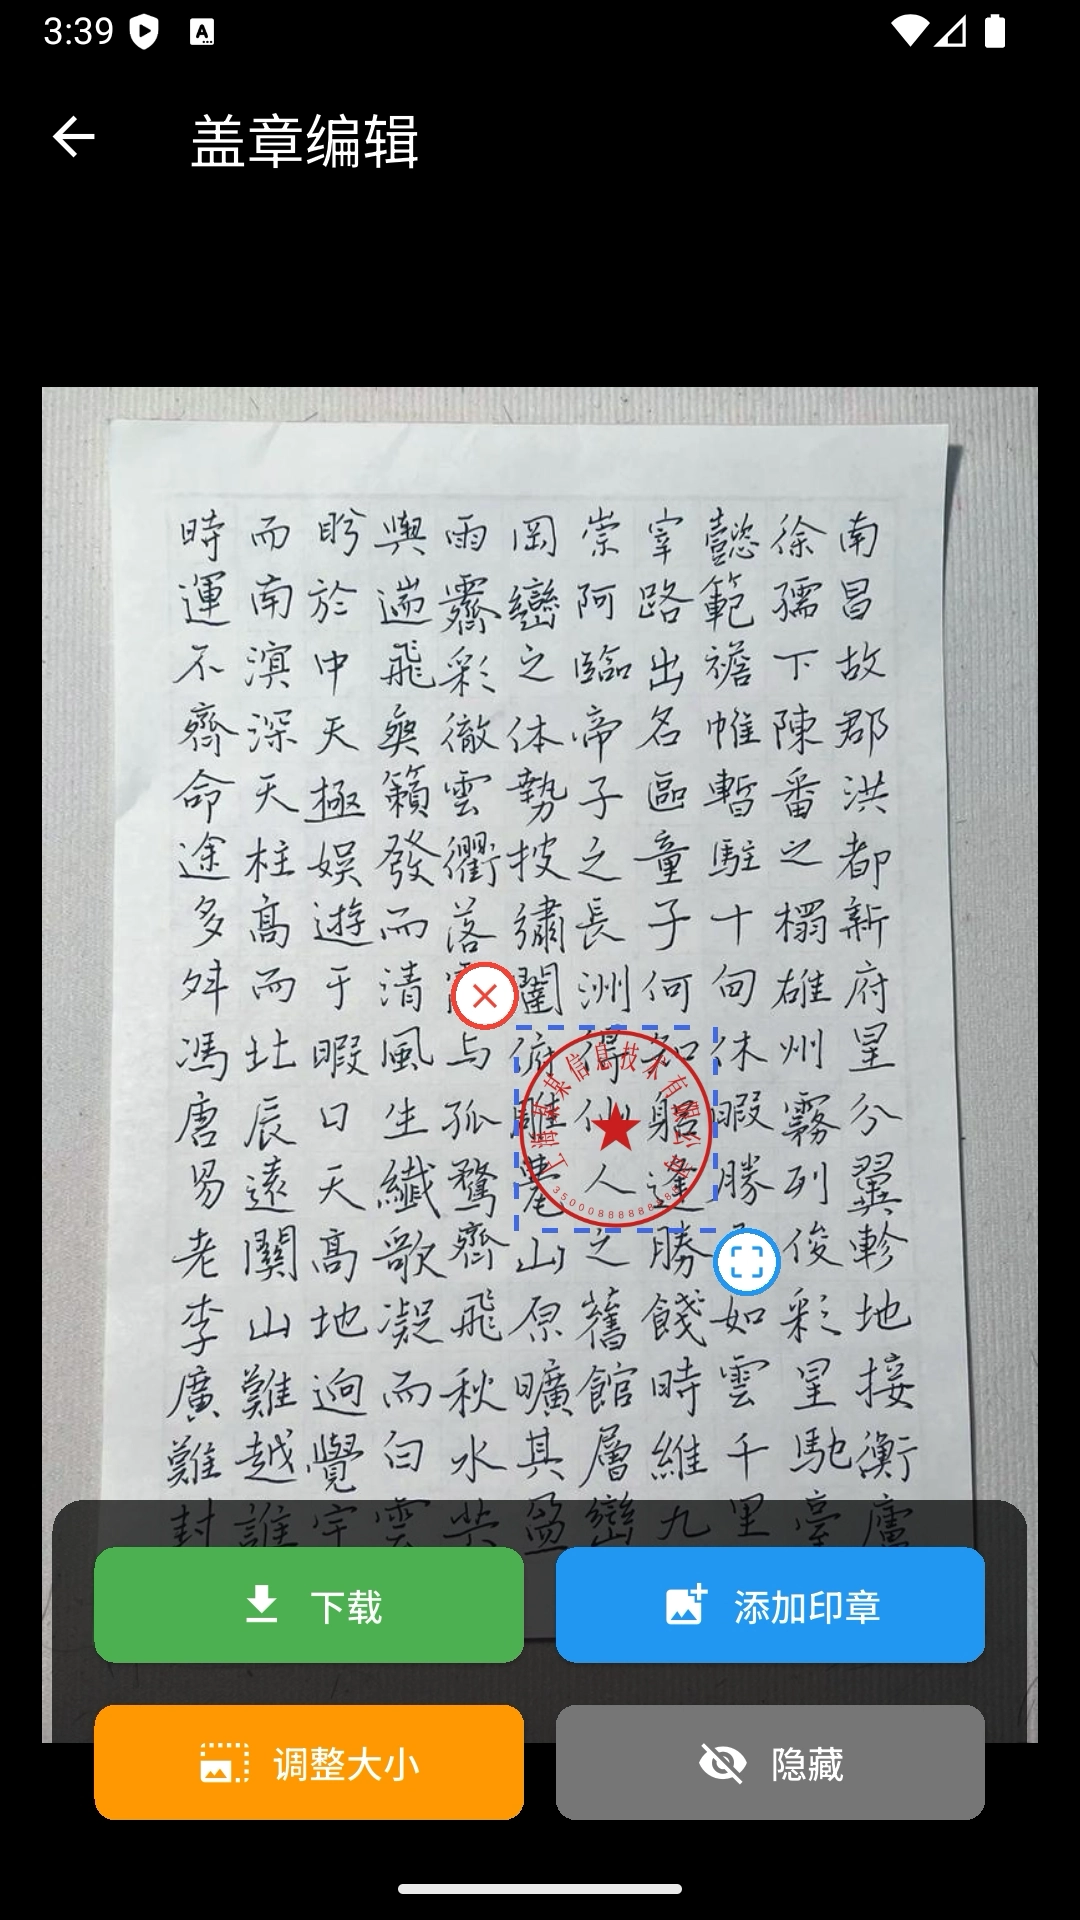 3:39
盖章编辑
南昌故郡洪都新府星分翼軫地接衡廬
徐孺下陳番之榻雄州霧列俊彩星馳臺
懿範襜帷暫駐十旬休暇勝如雲千里
宰路出名區童子何知躬逢勝餞時維九
崇阿臨帝子之長洲得仙人之舊館層巒
岡巒之体勢披繡闥俯雕甍山原曠其盈
雨霽彩徹雲衢落与孤鶩齊飛秋水
與遄飛爽籟發而清風生纖歌凝而白雲
盻於中天極娛遊于暇日天高地迥覺宇
而南溟深天柱高而北辰遠關山難越誰
時運不齊命途多舛馮唐易老李廣難封
上海某某信息技术有限公司
下载
添加印章
调整大小
隐藏